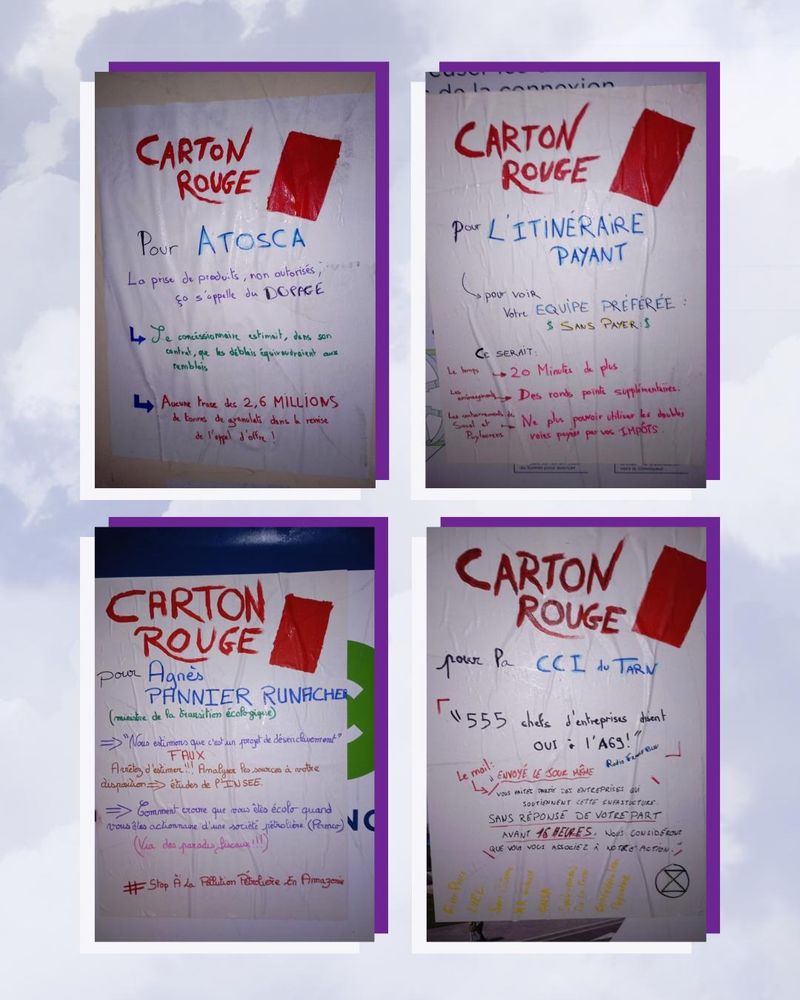 CARTON
ROUGE
Pour ATOSCA
La prise de produits, non autorisés,
ça s'appelle du DOPAGE
Le concessionnaire estimait, dans son
contrat, que les déblais équivaudraient aux
remblais
Aucune trace des 2,6 MILLIONS
de tonnes de granulats dans la remise
de l'appel d'offre !
de la connexion
CARTON
ROUGE
pour L'ITINÉRAIRE
PAYANT
pour voir
Votre EQUIPE PRÉFÉRÉE :
$ SANS PAYER $
CE SERAIT:
Le temps → 20 Minutes de plus
Les aménagements → Des ronds points supplémentaires.
Les contournements de
Soual et
Puylaurens → Ne plus pouvoir utiliser les doubles
voies payées par vos IMPÔTS
CARTON
ROUGE
pour Agnès
PANNIER RUNACHER
(ministre de la transition écologique)
⇒ "Nous estimons que c'est un projet de désenclavement"
FAUX
Arrêtez d'estimer!!! Analyser les sources à votre
disposition ⇒ études de l'INSEE.
⇒ Comment croire que vous êtes écolo quand
vous êtes actionnaire d'une société pétrolière (Perenco)
(Via des paradis fiscaux!!!)
# Stop À La Pollution Pétrolière En Amazonie
CARTON
ROUGE
pour la CCI du TARN
"555 chefs d'entreprises disent
OUI à l'A69!"
Le mail: ENVOYÉ LE JOUR MÊME
VOUS FAITES PARTIE DES ENTREPRISES QUI
SOUTIENNENT CETTE INFRASTUCTURE.
SANS RÉPONSE DE VOTRE PART
AVANT 16 HEURES, NOUS CONSIDÉRONS
QUE VOUS VOUS ASSOCIEZ À NOTRE ACTION.